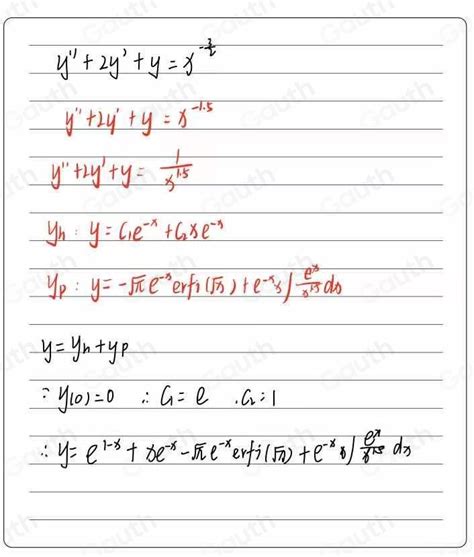 y'' + 2y' + y = x^{-\frac{3}{2}}
y'' + 2y' + y = x^{-1.5}
y'' + 2y' + y = \frac{1}{x^{1.5}}
yh : y = C₁e^{-x} + C₂xe^{-x}
yp : y = -√π e^{-x} erfi(√x) + e^{-x}x∫\frac{e^x}{x^{1.5}}dx
y = yh + yp
∵ y(0) = 0 ∴ C₁ = e , C₂ = 1
∴ y = e^{1-x} + xe^{-x} - √π e^{-x} erfi(√x) + e^{-x}x∫\frac{e^x}{x^{1.5}}dx